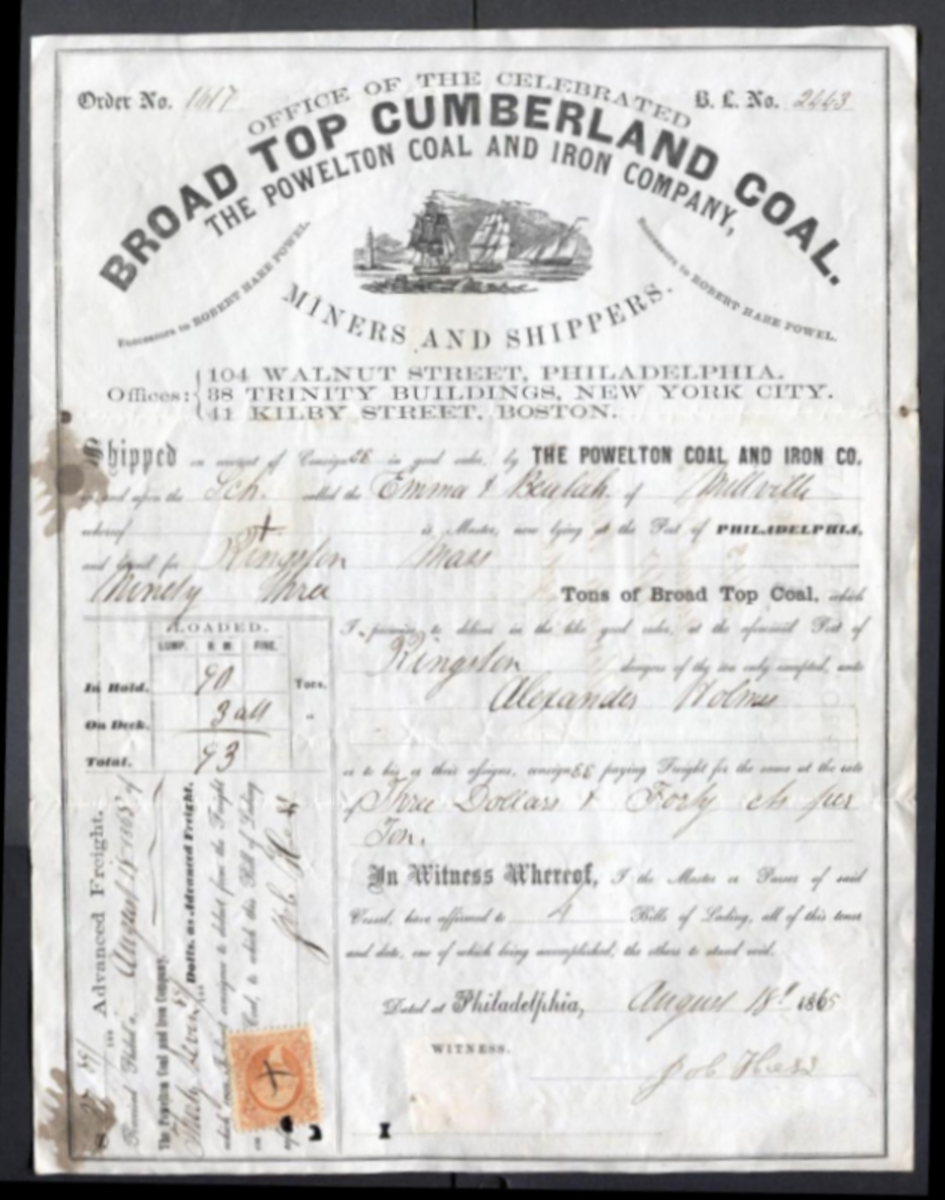 Order No. 1417
B. L. No. 2443
OFFICE OF THE CELEBRATED
BROAD TOP CUMBERLAND COAL.
THE POWELTON COAL AND IRON COMPANY,
Successors to ROBERT HARE POWEL.
Successors to ROBERT HARE POWEL.
MINERS AND SHIPPERS.
Offices:
104 WALNUT STREET, PHILADELPHIA.
38 TRINITY BUILDINGS, NEW YORK CITY.
41 KILBY STREET, BOSTON.
Shipped on account of Consignee in good order, by THE POWELTON COAL AND IRON CO.
upon the Sch. called the Emma & Beulah of Millville
whereof + is Master, now lying at the Port of PHILADELPHIA,
and bound for Kingston Mass
Ninety Three Tons of Broad Top Coal, which
I promise to deliver in the like good order, at the aforesaid Port of
Kingston dangers of the sea only excepted, unto
Alexander Holmes
or to his or their assigns, consignees paying Freight for the same at the rate
of Three Dollars & Forty cts per
Ton.
In Witness Whereof, I the Master or Purser of said
Vessel, have affirmed to 4 Bills of Lading, all of this tenor
and date, one of which being accomplished, the others to stand void.
Dated at Philadelphia, August 18th 1865
WITNESS.
Job Hess
LOADED.
LUMP. R. M. FINE.
In Hold. 90 Tons.
On Deck. 3 all "
Total. 93
Advanced Freight.
Received Philad'a. August 18 1865 of
The Powelton Coal and Iron Company.
Dolls. as Advanced Freight,
consignee to deduct from the Freight
Coal, to which this Bill of Lading
Job Hess